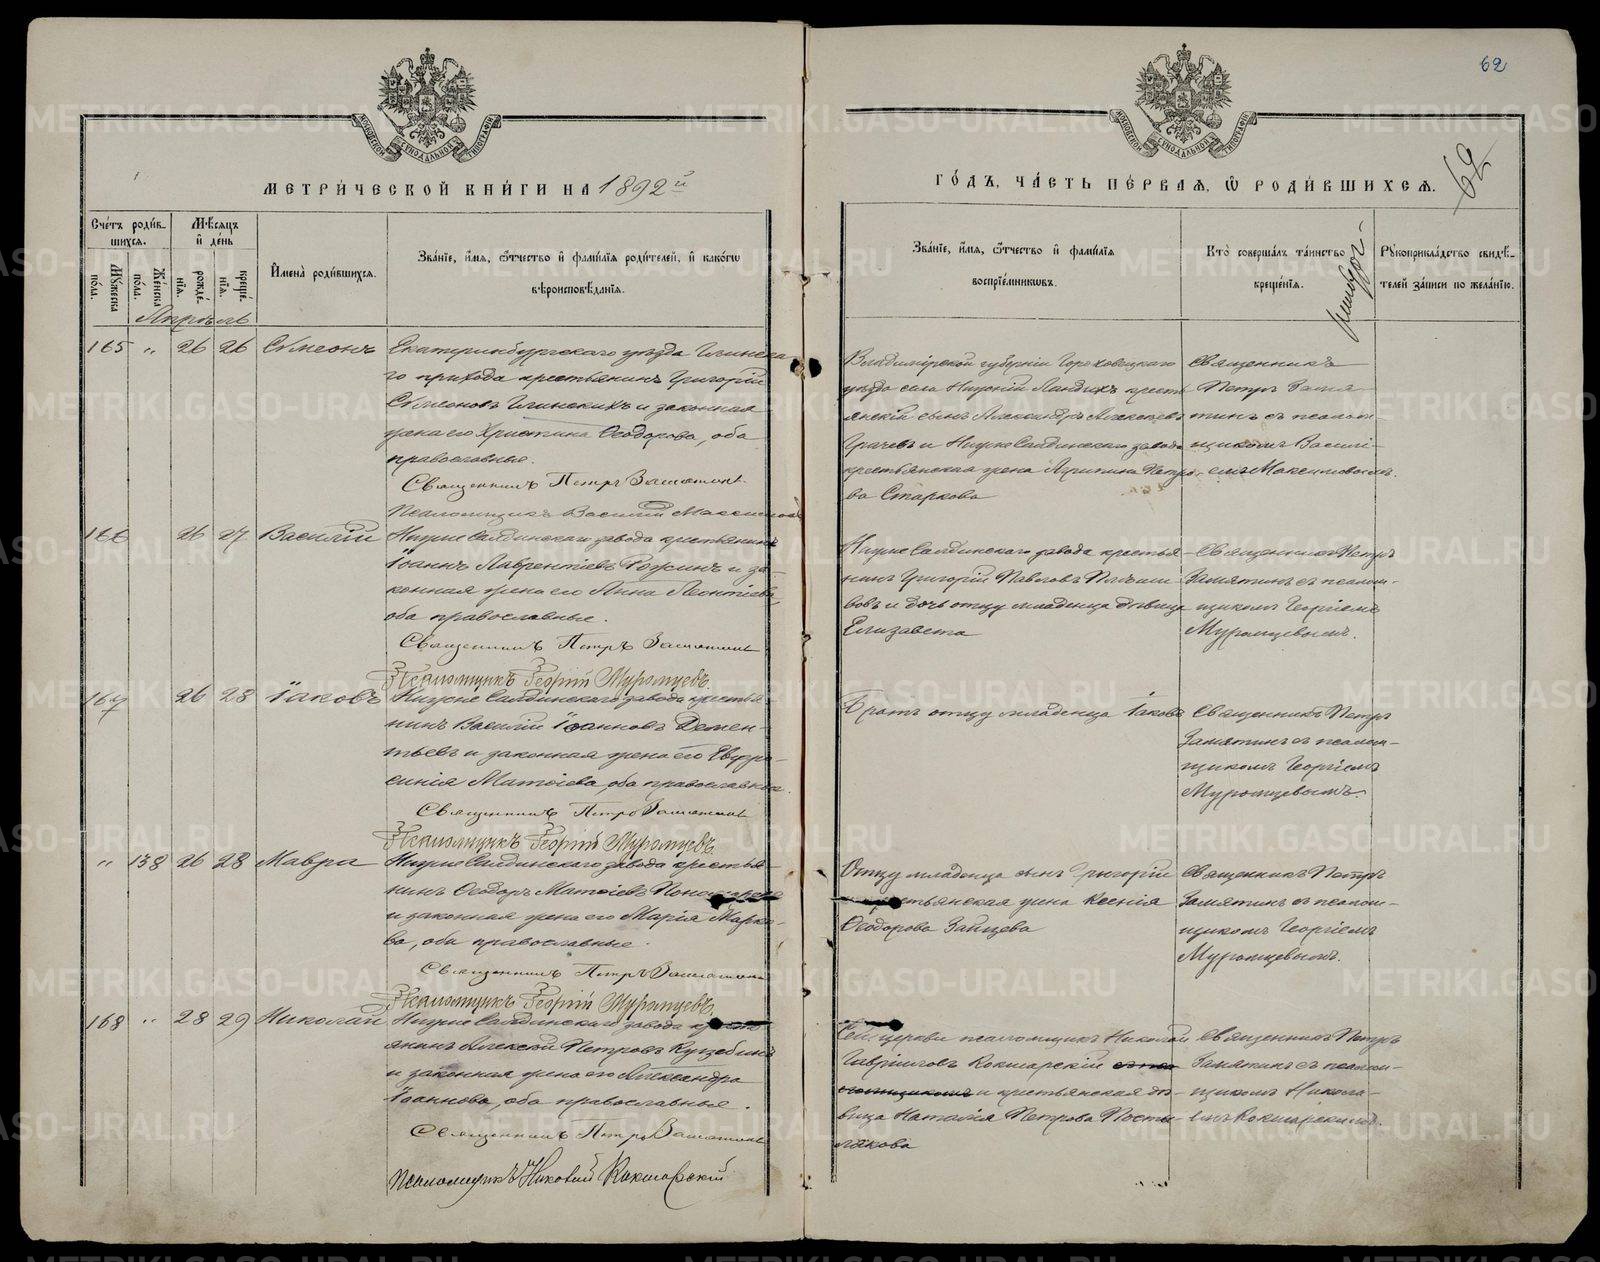 62
62
МЕТРИЧЕСКОЙ КНИГИ НА 1892й
ГОДЪ, ЧАСТЬ ПЕРВАЯ, Ѿ РОДИВШИХСЯ.
МОСКОВСКОЙ СѴНОДАЛЬНОЙ ТИПОГРАФІИ
МОСКОВСКОЙ СѴНОДАЛЬНОЙ ТИПОГРАФІИ
Счетъ родив-
шихся.
Мужеска пола.
Женска пола.
Мѣсяцъ
и день
рожденія.
крещенія.
Имена родившихся.
Званіе, имя, отчество и фамилія родителей, и какогѡ
вѣроисповѣданія.
Званіе, имя, отчество и фамилія
воспріемниковъ.
Кто совершалъ таинство
крещенія.
Рукоприкладство свидѣ-
телей записи по желанію.
Апрѣль
165 " 26 26 Сѵмеонъ
Екатеринбургскаго уѣзда
го прихода крестьянинъ Григорій
Сѵмеоновъ и законная
жена его Христина Ѳеодорова, оба
православные.
Священникъ Петръ Замятинъ
Псаломщикъ Василій
Владимірской губерніи Гороховецкаго
уѣзда села Нижній Ландихъ кресть
янскій сынъ Александръ Алексѣевъ
Грачевъ и Нижне Салдинскаго завода
крестьянская жена Агрипина Петро-
ва Старкова
Священникъ
Петръ Замя
тинъ съ псалом-
щикомъ Василі-
емъ
166 26 27 Василій
Нижне Салдинскаго завода крестьянинъ
Іоаннъ Лаврентіевъ и за-
конная жена его Анна Леонтіева,
оба православные.
Священникъ Петръ Замятинъ
Псаломщикъ Георгій Муромцевъ.
Нижне Салдинскаго завода крестья-
нинъ Григорій Павловъ
и дочь отцу младенца дѣвица
Елизавета
Священникъ Петръ
Замятинъ съ псалом-
щикомъ Георгіемъ
Муромцевымъ.
167 26 28 Іаковъ
Нижне Салдинскаго завода крестья-
нинъ Василій Іоанновъ Демен-
тьевъ и законная жена его Евфро-
синія Матѳіева, оба православные.
Священникъ Петръ Замятинъ
Псаломщикъ Георгій Муромцевъ.
Братъ отцу младенца Іаковъ
Священникъ Петръ
Замятинъ съ псалом-
щикомъ Георгіемъ
Муромцевымъ.
" 138 26 28 Мавра
Нижне Салдинскаго завода крестья-
нинъ Ѳеодоръ Матѳіевъ
и законная жена его Марія Марко-
ва, оба православные.
Священникъ Петръ Замятинъ
Псаломщикъ Георгій Муромцевъ.
Отцу младенца сынъ Григорій
крестьянская жена Ксенія
Ѳеодорова Зайцева
Священникъ Петръ
Замятинъ съ псалом-
щикомъ Георгіемъ
Муромцевымъ.
168 " 28 29 Николай
Нижне Салдинскаго завода кресть
янинъ Алексѣй Петровъ
и законная жена его Александра
Іоаннова, оба православные.
Священникъ Петръ Замятинъ
Псаломщикъ Николай Кокшарскій
Сей церкви псаломщикъ Николай
Гавріиловъ Кокшарскій
и крестьянская дѣ-
вица Наталія Петрова Посты-
лякова
Священникъ Петръ
Замятинъ съ псалом-
щикомъ Никола-
емъ Кокшарскимъ.
METRIKI.GASO-URAL.RU